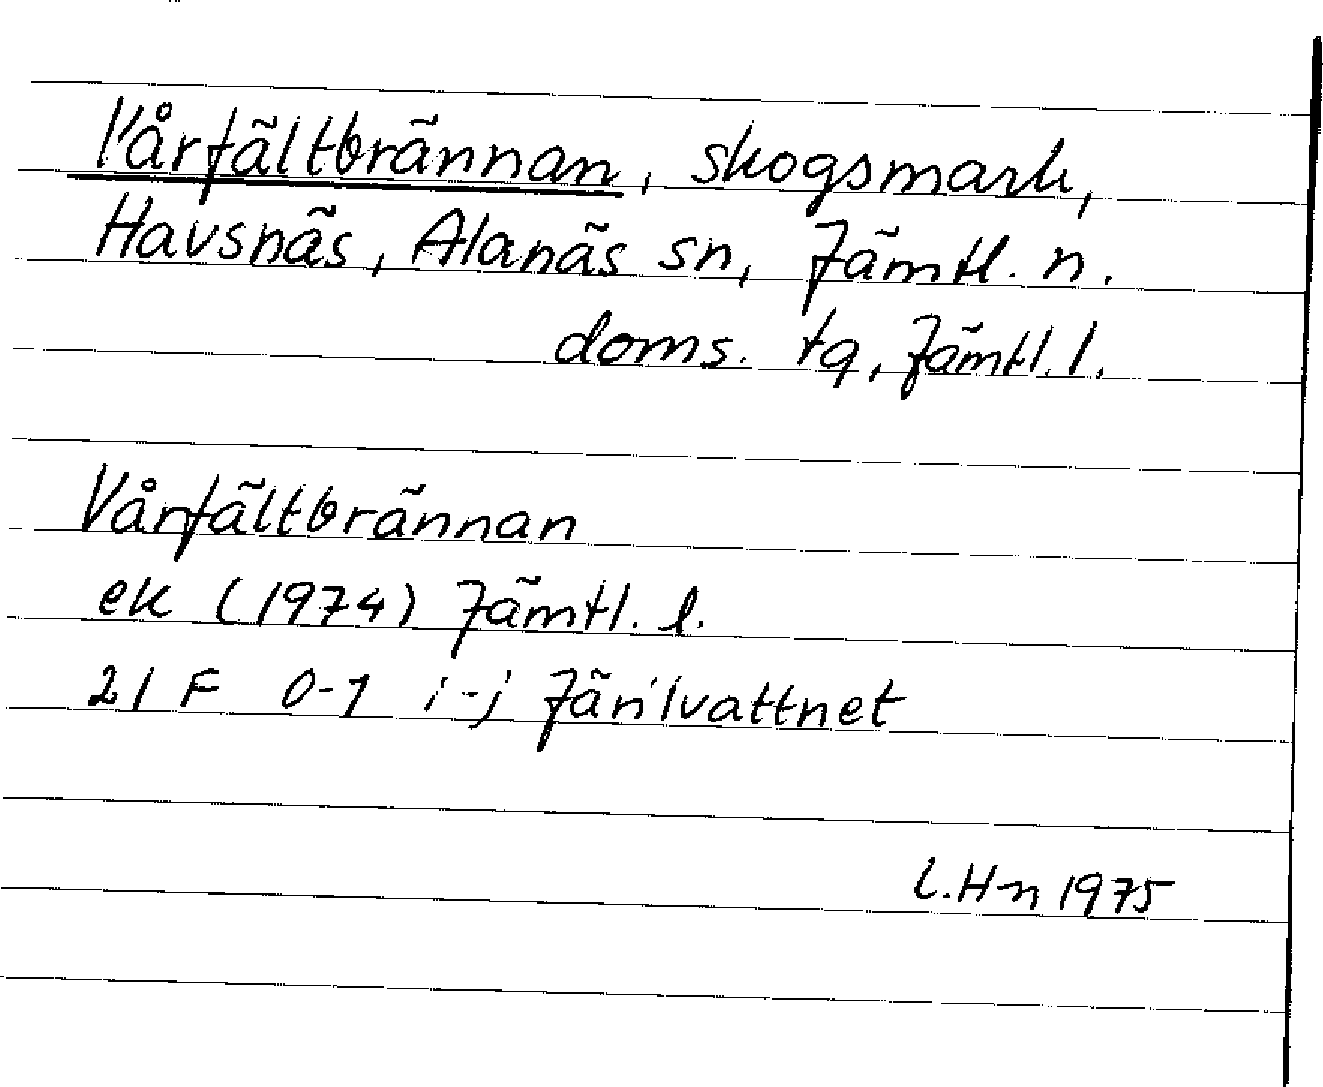 Vårfältbrännan, skogsmark,
Havsnäs, Alanäs sn, Jämtl. n.
doms. tg, Jämtl. l.
Vårfältbrännan
ek (1974) Jämtl. l.
21 F 0-1 i-j Järilvattnet
L.H-n 1975